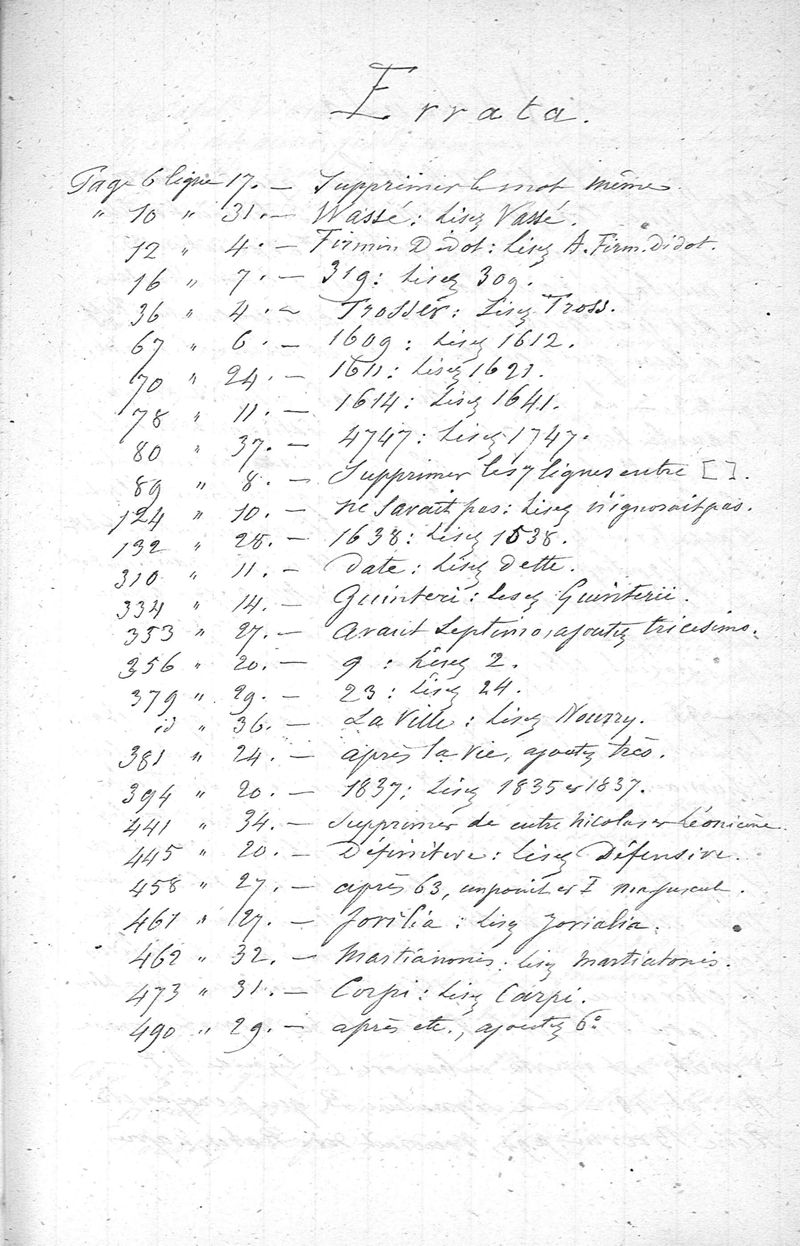 Errata.
Page 6 ligne 17. — Supprimer le mot même.
" 10 " 31. — Wassé : Lisez Vassé.
12 " 4. — Firmin Didot : Lisez A. Firm. Didot.
16 " 7. — 319 : Lisez 309.
36 " 4. — Trosser : Lisez Tross.
67 " 6. — 1609 : Lisez 1612.
70 " 24. — 1611 : Lisez 1621.
78 " 11. — 1614 : Lisez 1641.
80 " 37. — 4747 : Lisez 1747.
89 " 8. — Supprimer les 7 lignes entre [ ].
124 " 10. — ne savait pas : Lisez n'ignorait pas.
132 " 28. — 1638 : Lisez 1538.
310 " 11. — Date : Lisez dette.
334 " 14. — Guinteri : Lisez Guinterii.
353 " 27. — Avant Septimo, ajoutez tricesimo.
356 " 20. — 9 : Lisez 2.
379 " 29. — 23 : Lisez 24.
id " 36. — La Ville : Lisez Nourry.
381 " 24. — après la vie, ajoutez très.
394 " 20. — 1837 ; Lisez 1835 et 1837.
441 " 34. — Supprimer de entre Nicolas et Léonicène.
445 " 20. — Définitive : Lisez Défensive.
458 " 27. — après 63, un point et I majuscul.
461 " 27. — Jovilia : Lisez Jovialia.
462 " 32. — Martianonis : Lisez Martiatonis.
473 " 31. — Corpi : Lisez Carpi.
490 " 29. — après etc., ajoutez 6°